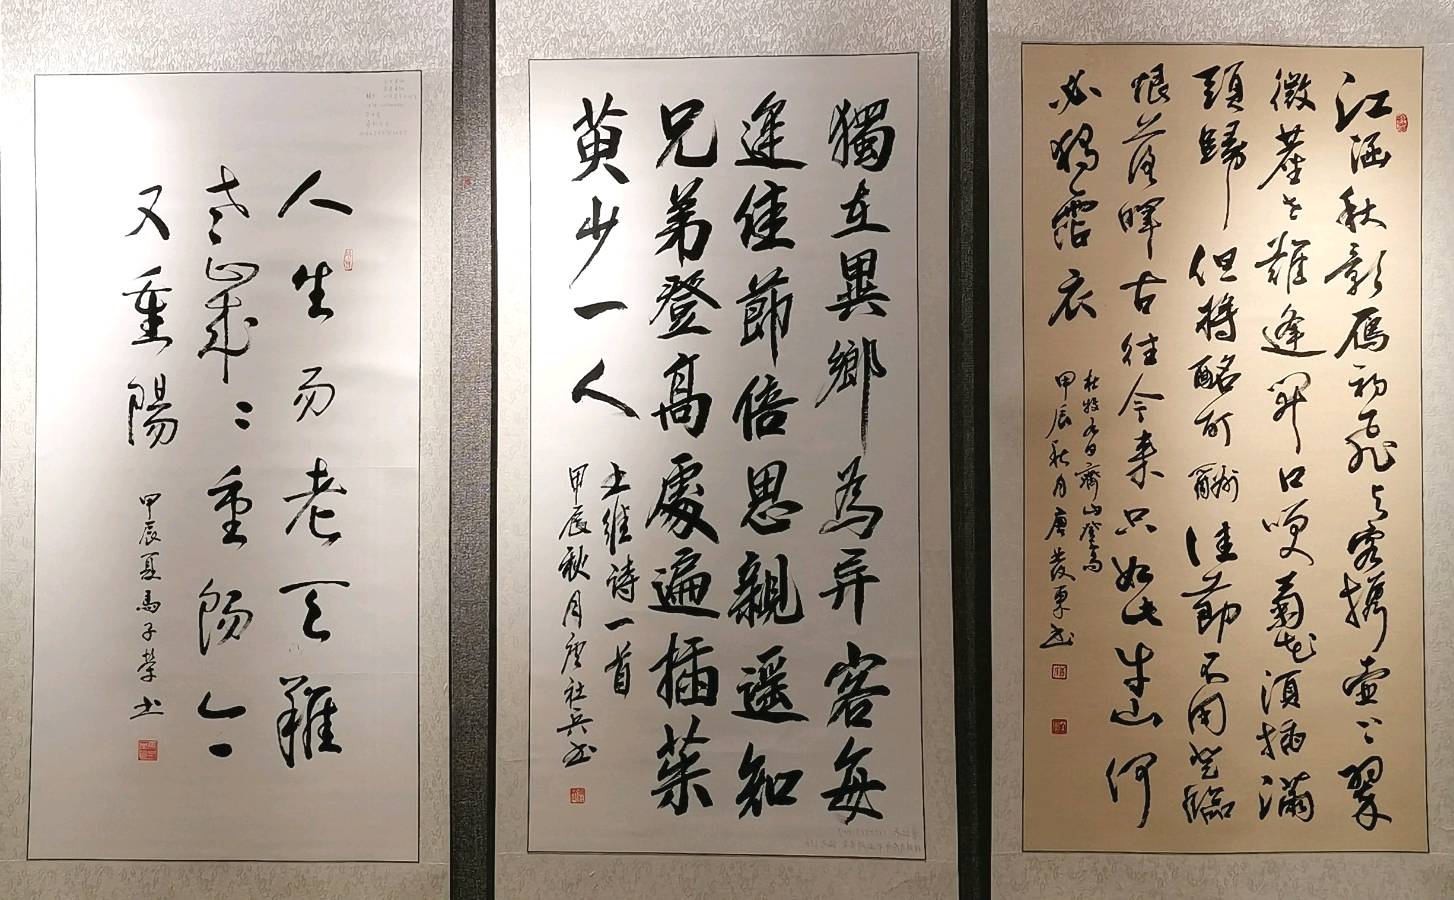 江涵秋影雁初飛与客攜壺上翠
微塵世難逢開口笑菊花須插滿
頭歸但將酩酊酬佳節不用登臨
恨落暉古往今來只如此牛山何
必獨霑衣
杜牧九日齊山登高
甲辰秋月唐發軍书
獨在異鄉為异客每
逢佳節倍思親遥知
兄弟登高處遍插茱
萸少一人
王維诗一首
甲辰秋月唐社兵书
人生易老天難
老歲〻重陽今
又重陽
甲辰夏馬子榮书